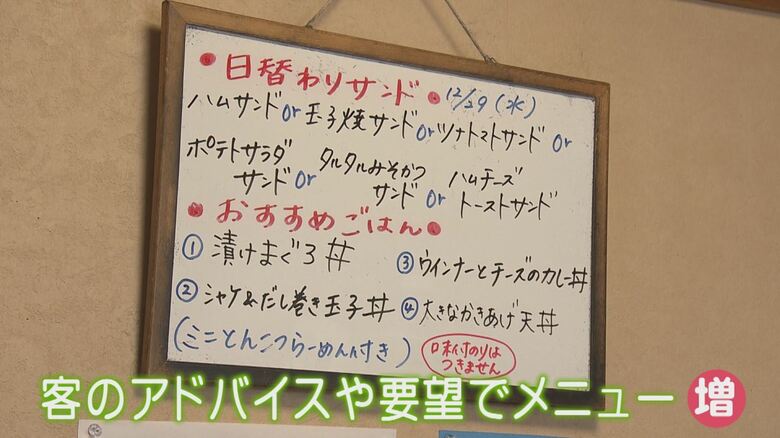 • 日替わりサンド • 12/29 (水)
ハムサンド or 玉子焼サンド or ツナトマトサンド or
ポテトサラダサンド or タルタルみそかつサンド or ハムチーズトーストサンド
• おすすめごはん •
① 漬けまぐろ丼
② シャケ&だし巻き玉子丼
③ ウインナーとチーズのカレー丼
④ 大きなかきあげ天丼
(ミニとんこつらーめん付き)
味付のりはつきません
客のアドバイスや要望でメニュー増